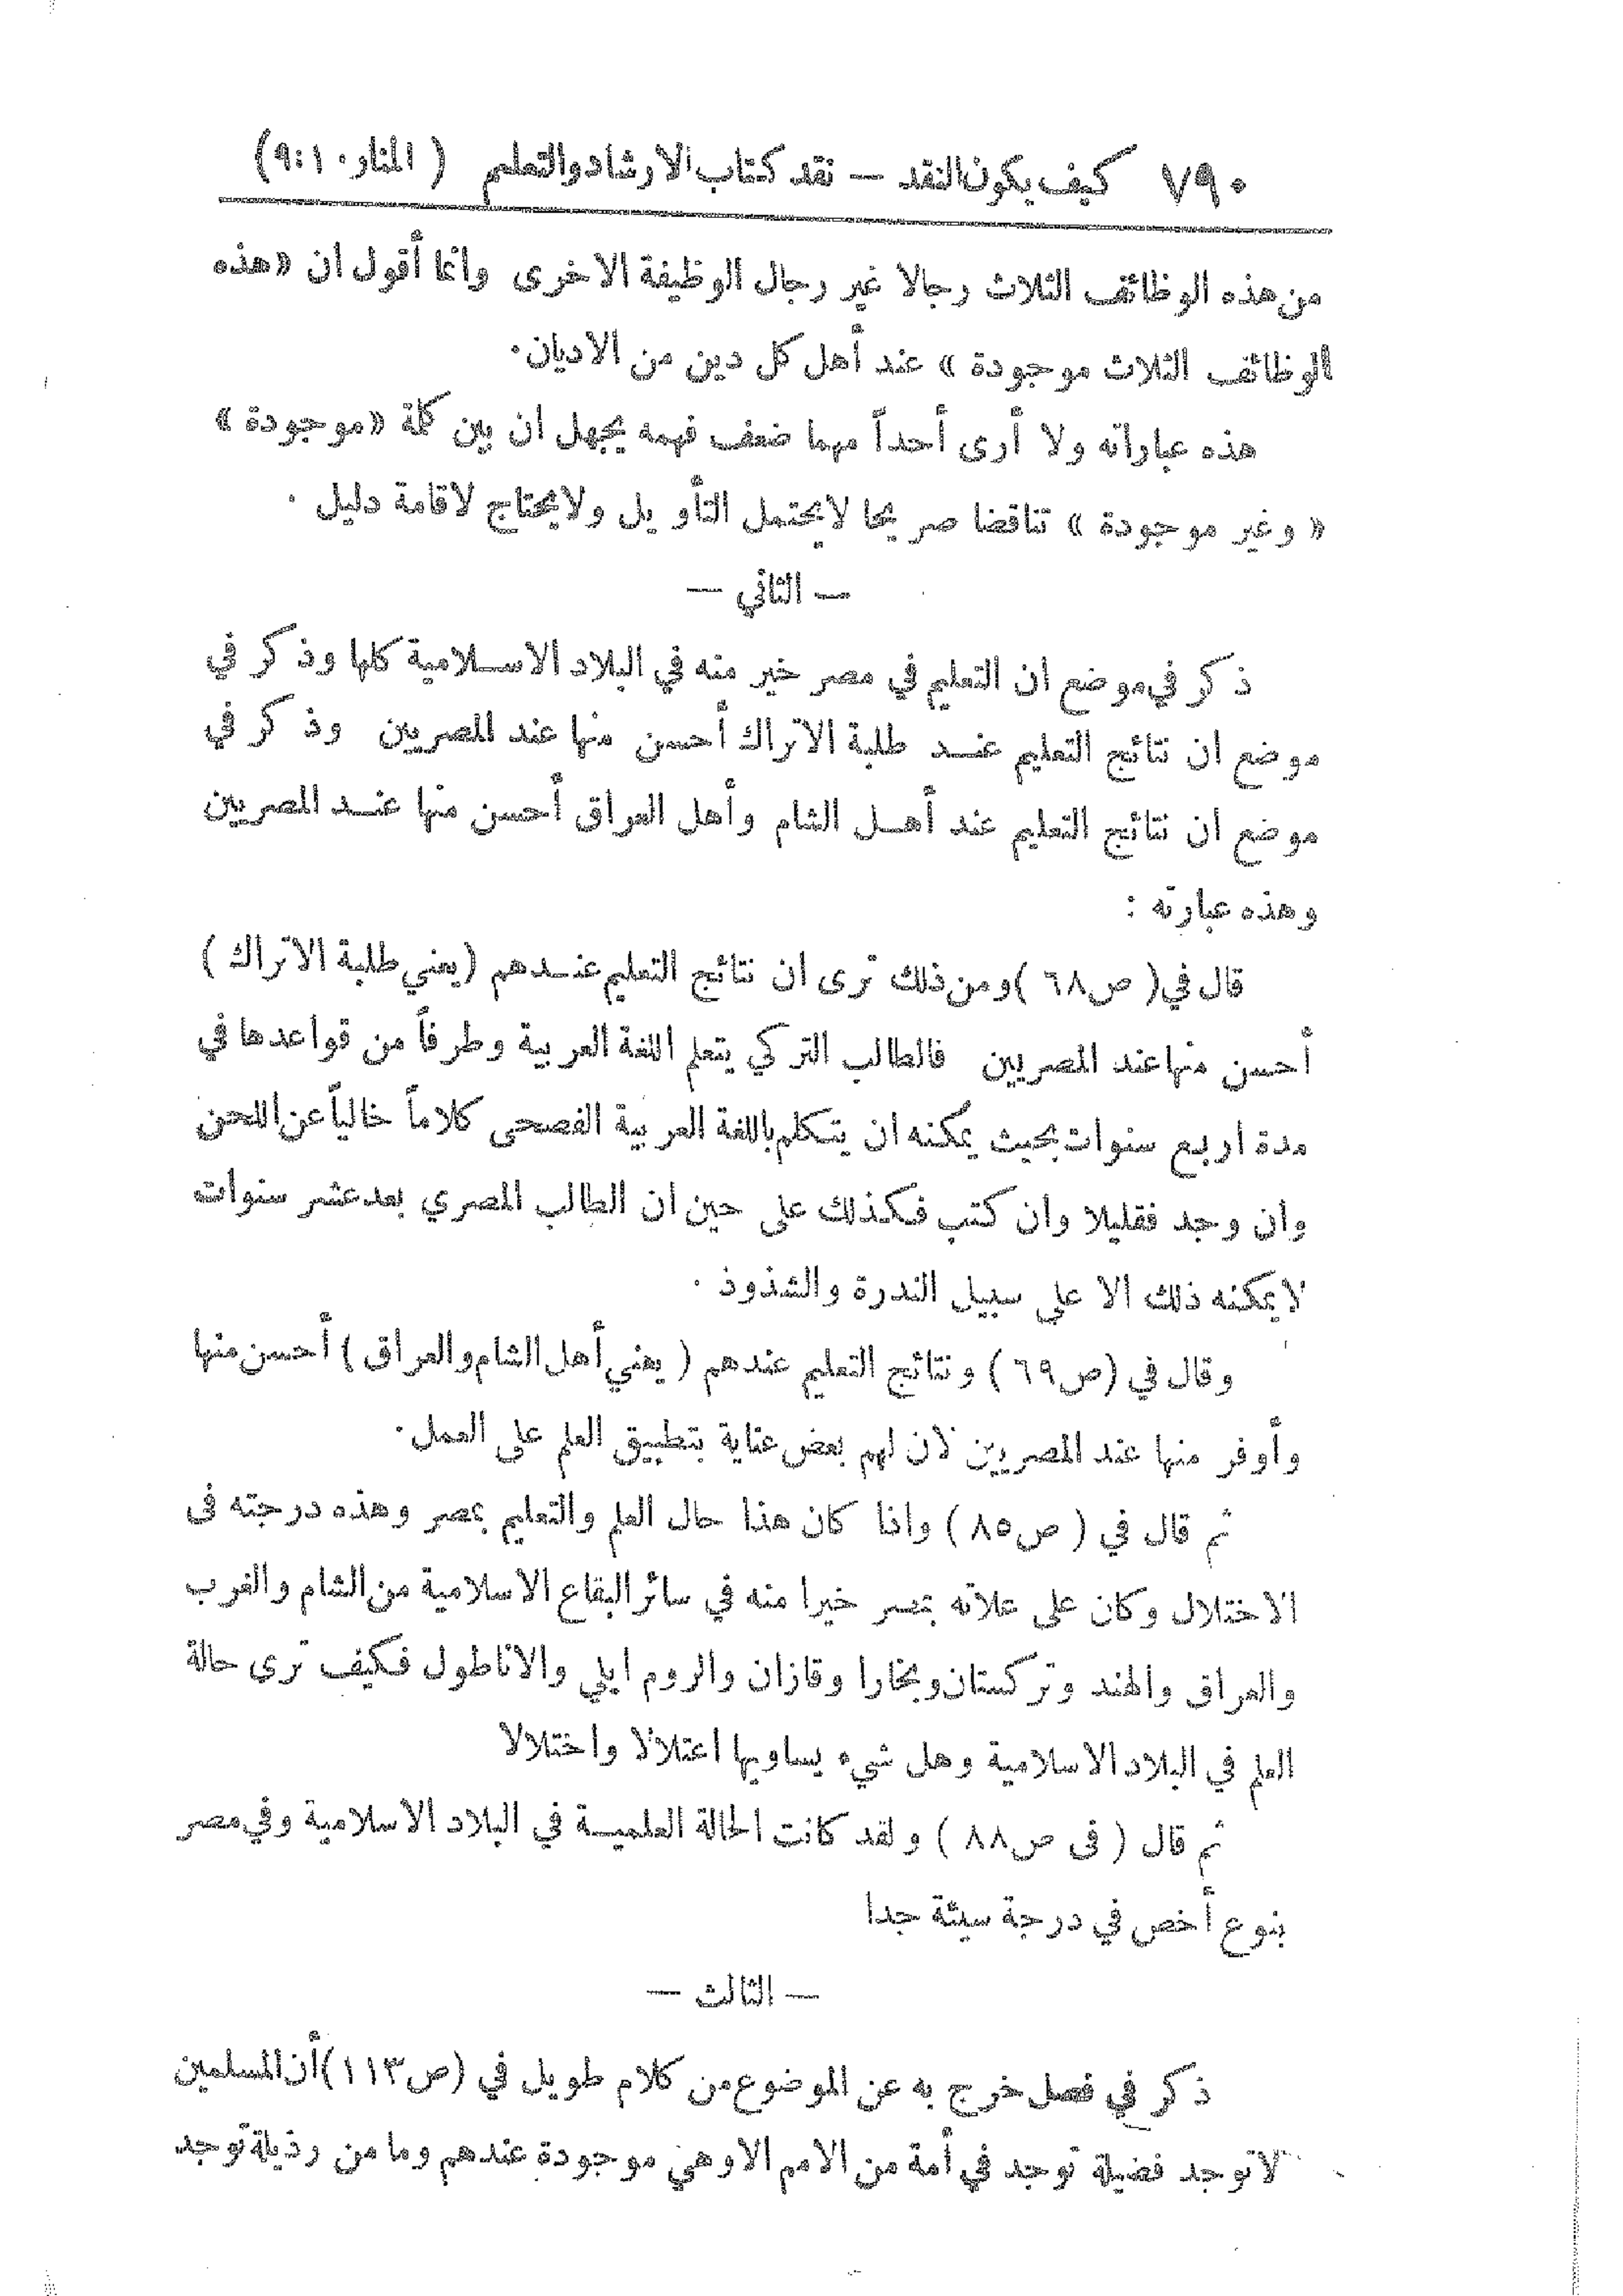 ٧٩٠ كيف يكون النقد — نقد كتاب الارشاد والتعليم (المنار ١٠:٩)
من هذه الوظائف الثلاث رجالا غير رجال الوظيفة الاخرى وانما أقول ان «هذه
الوظائف الثلاث موجودة» عند أهل كل دين من الاديان.
هذه عباراته ولا أرى أحداً مهما ضعف فهمه يجهل ان بين كلمة «موجودة»
«وغير موجودة» تناقضا صريحا لا يحتمل التأويل ولا يحتاج لاقامة دليل .
— الثاني —
ذكر في موضع ان التعليم في مصر خير منه في البلاد الاسلامية كلها وذكر في
موضع ان نتائج التعليم عند طلبة الاتراك أحسن منها عند المصريين وذكر في
موضع ان نتائج التعليم عند أهل الشام وأهل العراق أحسن منها عند المصريين
وهذه عبارته :
قال في (ص ٦٨) ومن ذلك ترى ان نتائج التعليم عندهم (يعني طلبة الاتراك)
أحسن منها عند المصريين فالطالب التركي يتعلم اللغة العربية وطرفاً من قواعدها في
مدة اربع سنوات بحيث يمكنه ان يتكلم باللغة العربية الفصحى كلاماً خالياً عن اللحن
وان وجد فقليلا وان كتب فكذلك على حين ان الطالب المصري بعد عشر سنوات
لا يمكنه ذلك الا على سبيل الندرة والشذوذ .
وقال في (ص ٦٩) ونتائج التعليم عندهم (يعني أهل الشام والعراق) أحسن منها
وأوفر منها عند المصريين لان لهم بعض عناية بتطبيق العلم على العمل.
ثم قال في (ص ٨٥) واذا كان هذا حال العلم والتعليم بمصر وهذه درجته فى
الاختلال وكان على علاته بمصر خيرا منه في سائر البقاع الاسلامية من الشام والغرب
والعراق والهند وتركستان وبخارا وقازان والروم ايلي والاناطول فكيف ترى حالة
العلم في البلاد الاسلامية وهل شيء يساويها اعتلالا واختلالا
ثم قال (فى ص ٨٨) ولقد كانت الحالة العلمية في البلاد الاسلامية وفي مصر
بنوع أخص في درجة سيئة جدا
— الثالث —
ذكر في فصل خرج به عن الموضوع من كلام طويل في (ص ١١٣) أن المسلمين
لا توجد فضيلة توجد في أمة من الامم الا وهي موجودة عندهم وما من رذيلة توجد